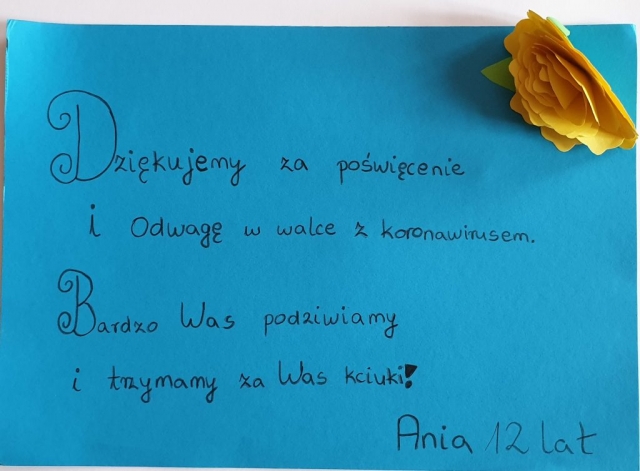 Dziękujemy za poświęcenie
i Odwagę w walce z koronawirusem.
Bardzo Was podziwiamy
i trzymamy za Was kciuki!
Ania 12 lat